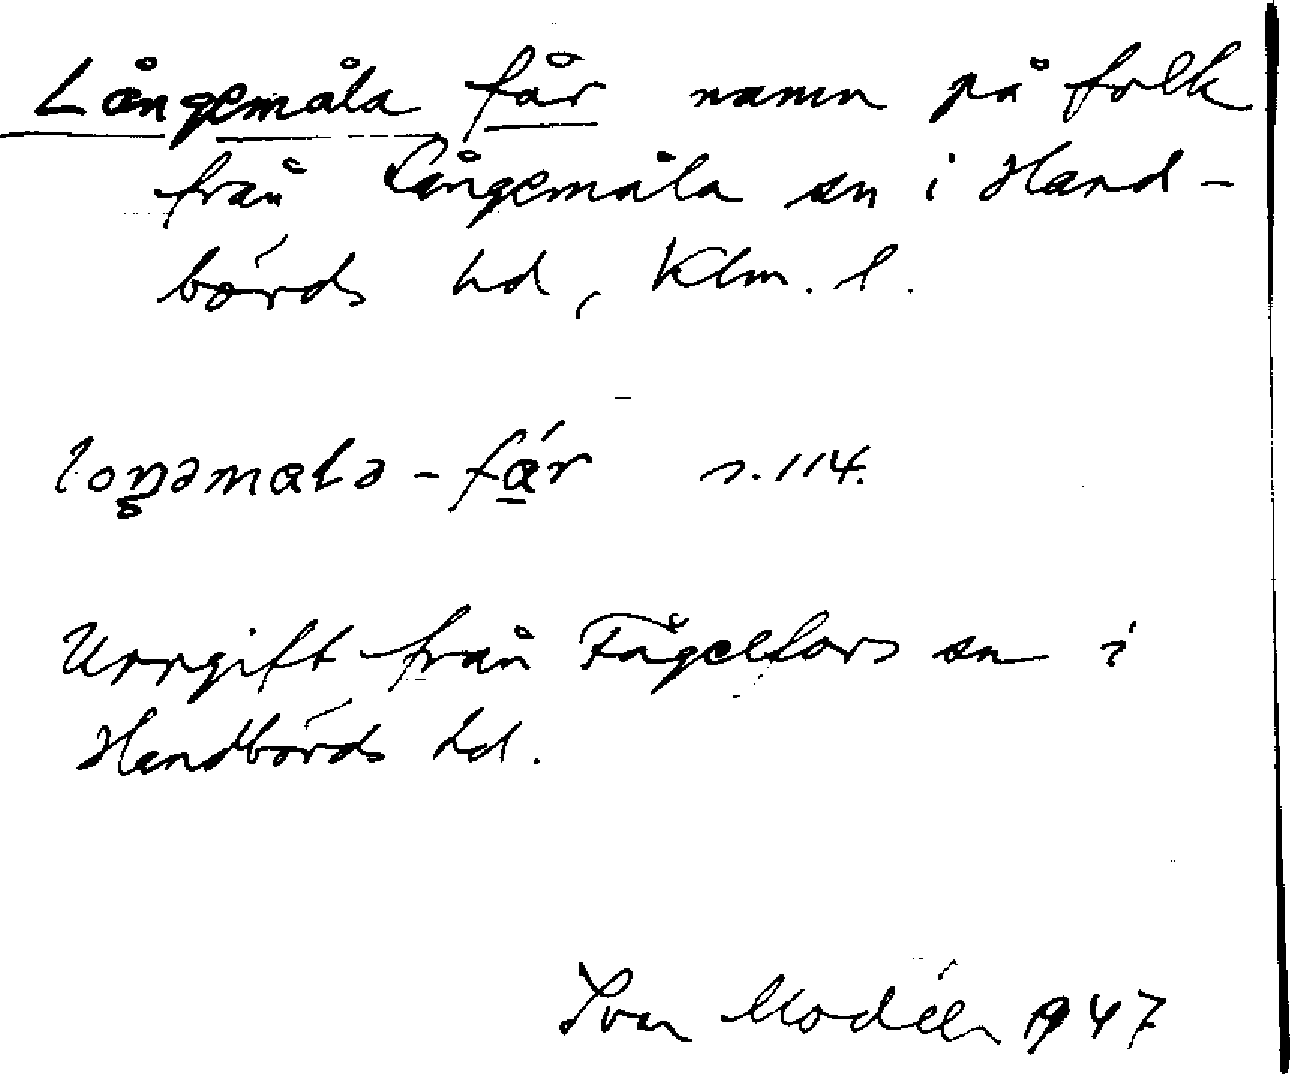 Långemåla får namn på folk
från Långemåla sn i Hand-
börds hd, Klm. l.
loŋəmɑlə - fɑ́r s. 114.
Uppgift från Fågelfors sn i
Handbörds hd.
Ivar Modéer 1947